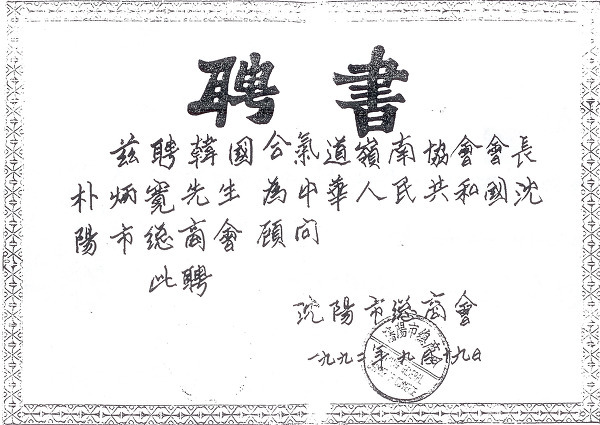 聘書
茲聘韓國合氣道嶺南協會會長
朴炳寬先生為中華人民共和國沈
陽市總商會顧問
此聘
沈陽市總商會
一九九二年九月十九日